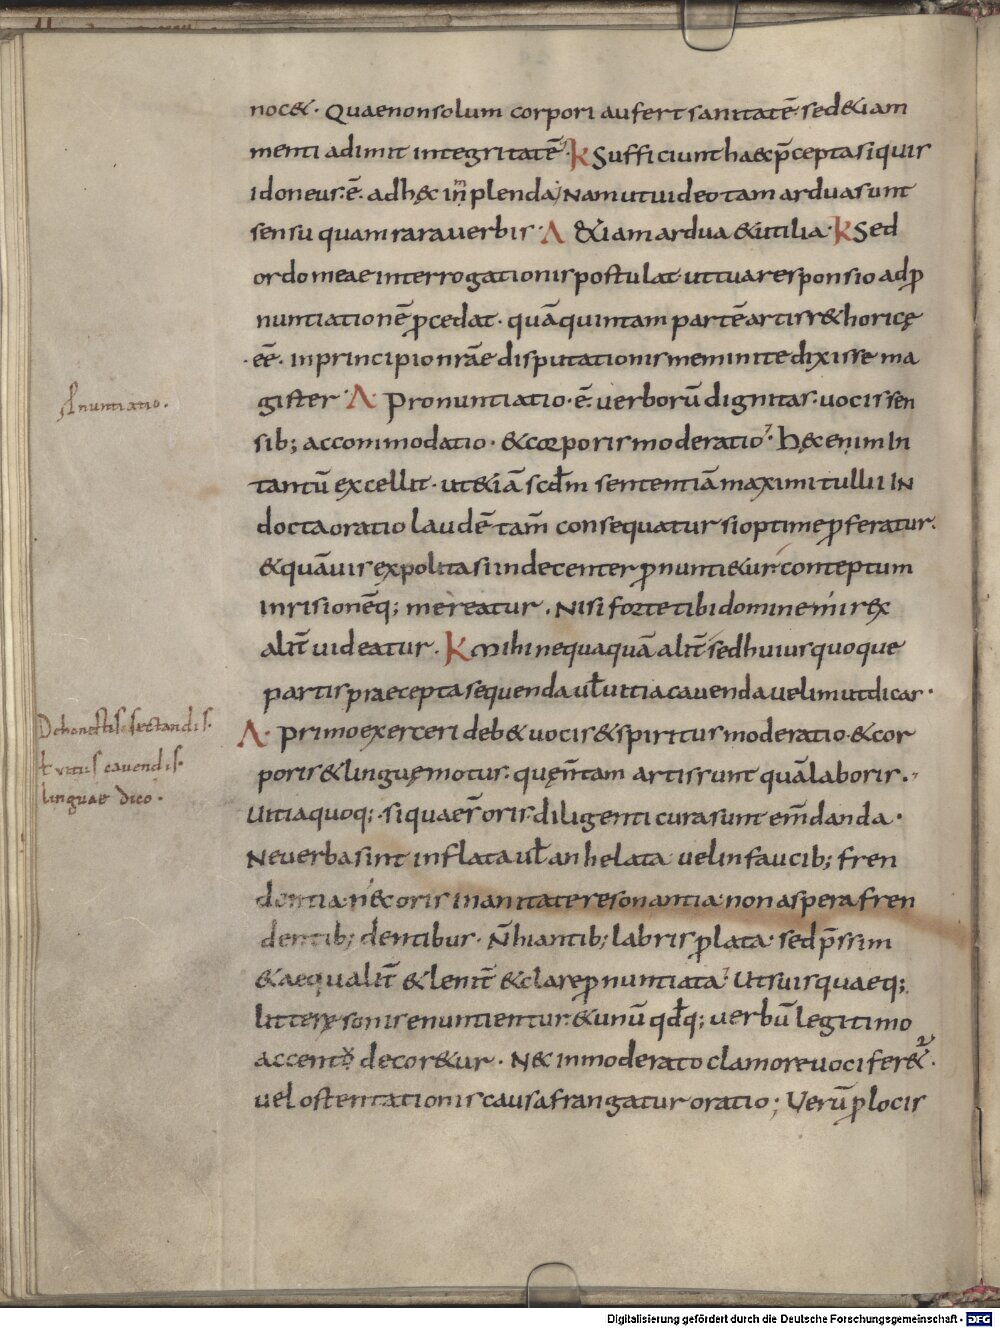 noc&. Quae non solum corpori aufert sanitatē sed &iam
menti adimit integritatē. K Sufficiunt haec p̄cepta si quis
idoneus. ē. ad hęc inplenda; Nam ut uideo tam ardua sunt
sensu quam rara uerbis. A &iam ardua & utilia. K Sed
ordo meae interrogationis postulat ut tua responsio ad p̱
nuntiationē p̱cedat. quā quintam partē artis r&horicę
.eē. in principio nrāe disputationis memini te dixisse ma
gister. A Pronuntiatio. ē. uerborū dignitas. uocis sen
sib; accommodatio. & corporis moderatio. hęc enim In
tantū excellit. ut &iā scd̄m sententiā maximi tullii IN
docta oratio laudē tam̄ consequatur si optime p̱feratur.
& quāuis expolita si indecenter p̱nunti&ur contemptum
inrisionēq; mereatur. Nisi forte tibi domine mi rex
alit̄ uideatur. K Mihi nequaquā alit̄ sed huius quoque
partis praecepta sequenda ul̄ uitia cauenda uelim ut dicas.
A. Primo exerceri deb& uocis & spiritus moderatio. & cor
poris & linguę motus. quę n̄ tam artis sunt quā laboris.
Uitia quoq; si qua er̄ oris diligenti cura sunt em̄danda.
Ne uerba sint inflata ul̄ anhelata uel in faucib; fren
dentia. nec oris inanitate resonantia. non aspera fren
dentib; dentibus. N̄ hiantib; labris p̱lata. sed p̄ssim
& aequalit̄ & lenit̄ & clare p̱nuntiata. Ut suis quaeq;
litterę sonis enuntientur. & unū qd̄q; uerbū legitimo
accentu decor&ur. N& inmoderato clamore uocifer&ur.
uel ostentationis causa frangatur oratio; Uerū p̱ locis
Pnuntiatio.
De honestis sectandis.
& vitiis cauendis.
linguae dico.
Digitalisierung gefördert durch die Deutsche Forschungsgemeinschaft - DFG